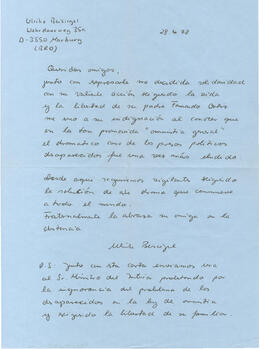 Ulrike Beisiegel
Wehrdaerweg 35A
D-3550 Marburg
(BRD)
28.4.78
Queridos amigos,
junto con expresarle mi decidida solidaridad
con su valiente acción exigiendo la vida
y la libertad de su padre Fernando Ortiz
me uno a su indignación al constar que
en la tan pronunciada "amnistía general"
el dramático caso de los presos políticos
desaparecidos fue una vez más eludido
Desde aquí seguiremos vigilantes exigiendo
la solución de este drama que conmueve
a todo el mundo.
Fraternalmente la abraza su amiga en la
distancia
Ulrike Beisiegel
P.S: Junto con esta carta enviamos una
al Sr. Ministro del Interior protestando por
la ignorancia del problema de los
desaparecidos en la ley de amnistía
y exigiendo la libertad de su familiar.